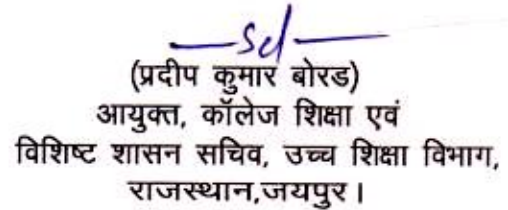 —Sd—
(प्रदीप कुमार बोरड)
आयुक्त, कॉलेज शिक्षा एवं
विशिष्ट शासन सचिव, उच्च शिक्षा विभाग,
राजस्थान,जयपुर।